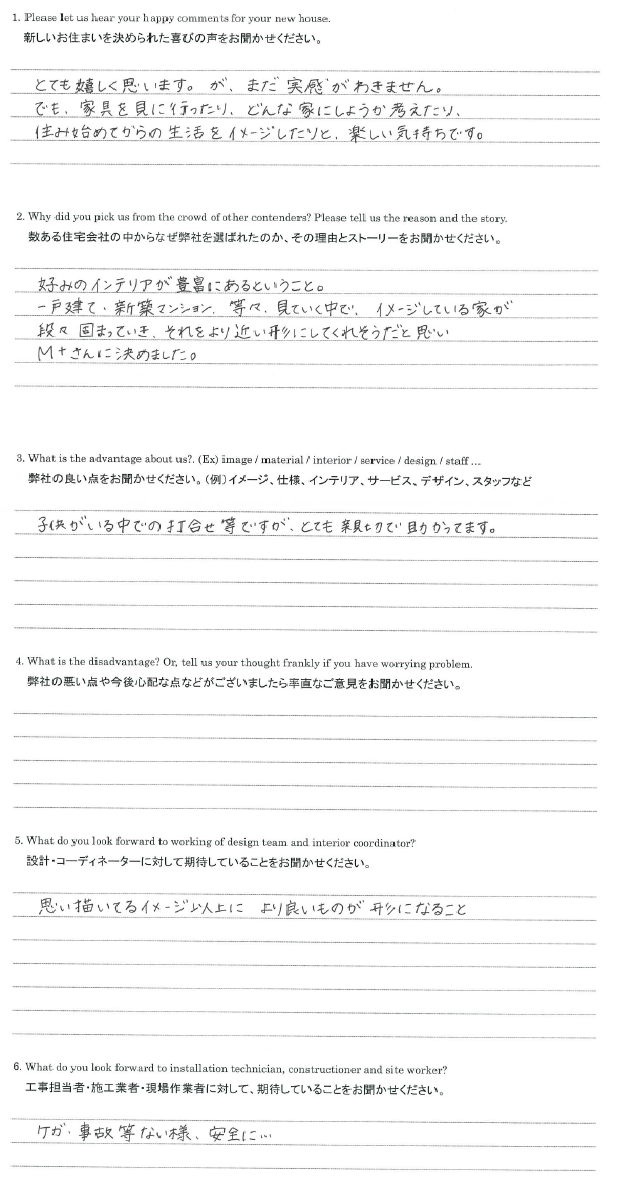 1. Please let us hear your happy comments for your new house.
新しいお住まいを決められた喜びの声をお聞かせください。
とても嬉しく思います。が、まだ実感がわきません。
でも、家具を見に行ったり、どんな家にしようか考えたり、
住み始めてからの生活をイメージしたりと、楽しい気持ちです。
2. Why did you pick us from the crowd of other contenders? Please tell us the reason and the story.
数ある住宅会社の中からなぜ弊社を選ばれたのか、その理由とストーリーをお聞かせください。
好みのインテリアが豊富にあるということ。
一戸建て・新築マンション、等々、見ていく中で、イメージしている家が
段々固まっていき、それをより近い形にしてくれそうだと思い
M+さんに決めました。
3. What is the advantage about us?. (Ex) image / material / interior / service / design / staff ...
弊社の良い点をお聞かせください。(例)イメージ、仕様、インテリア、サービス、デザイン、スタッフなど
子供がいる中での打合せ等ですが、とても親切で助かってます。
4. What is the disadvantage? Or, tell us your thought frankly if you have worrying problem.
弊社の悪い点や今後心配な点などがございましたら率直なご意見をお聞かせください。
5. What do you look forward to working of design team and interior coordinator?
設計・コーディネーターに対して期待していることをお聞かせください。
思い描いてるイメージ以上に より良いものが形になること
6. What do you look forward to installation technician, constructioner and site worker?
工事担当者・施工業者・現場作業者に対して、期待していることをお聞かせください。
ケガ・事故等ない様、安全に…